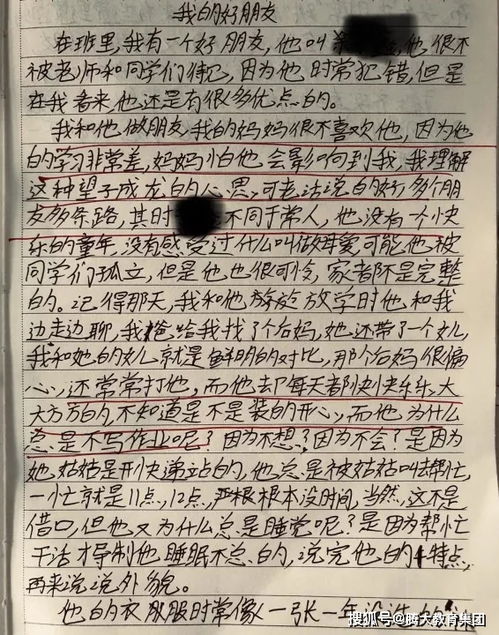 我的好朋友
在班里,我有一个好朋友,他叫 他很不
被老师和同学们待见,因为他时常犯错,但是
在我看来他还是有很多优点的。
我和他做朋友,我的妈妈很不喜欢他,因为他
的学习非常差,妈妈怕他会影响到我,我理解
这种望子成龙的心思,可老话说的好,多个朋
友多条路,其时 不同于常人,他没有一个快
乐的童年,没有感受过什么叫做母爱可能他被
同学们孤立,但是他也很可怜,家都不是完整
的。记得那天,我和他放学时他和我
边走边聊,我爸给我找了个后妈,她还带了一个女儿
我和她的女儿就是鲜明的对比,那个后妈很偏
心,还常常打他,而他却每天都快快乐乐,大
大方方的,不知道是不是装的开心,而他为什么
总是不写作业呢?因为不想?因为不会?是因为
她姑姑是开快递站的,他总是被姑姑叫去帮忙
一忙就是11点,12点,根本没时间,当然,这不是
借口,但他又为什么总是睡觉呢?是因为帮忙
干活才导制他睡眠不足的,说完他的特点,
再来说说外貌。
他的衣服时常像一张一年没洗
搜狐号@腾大教育集团